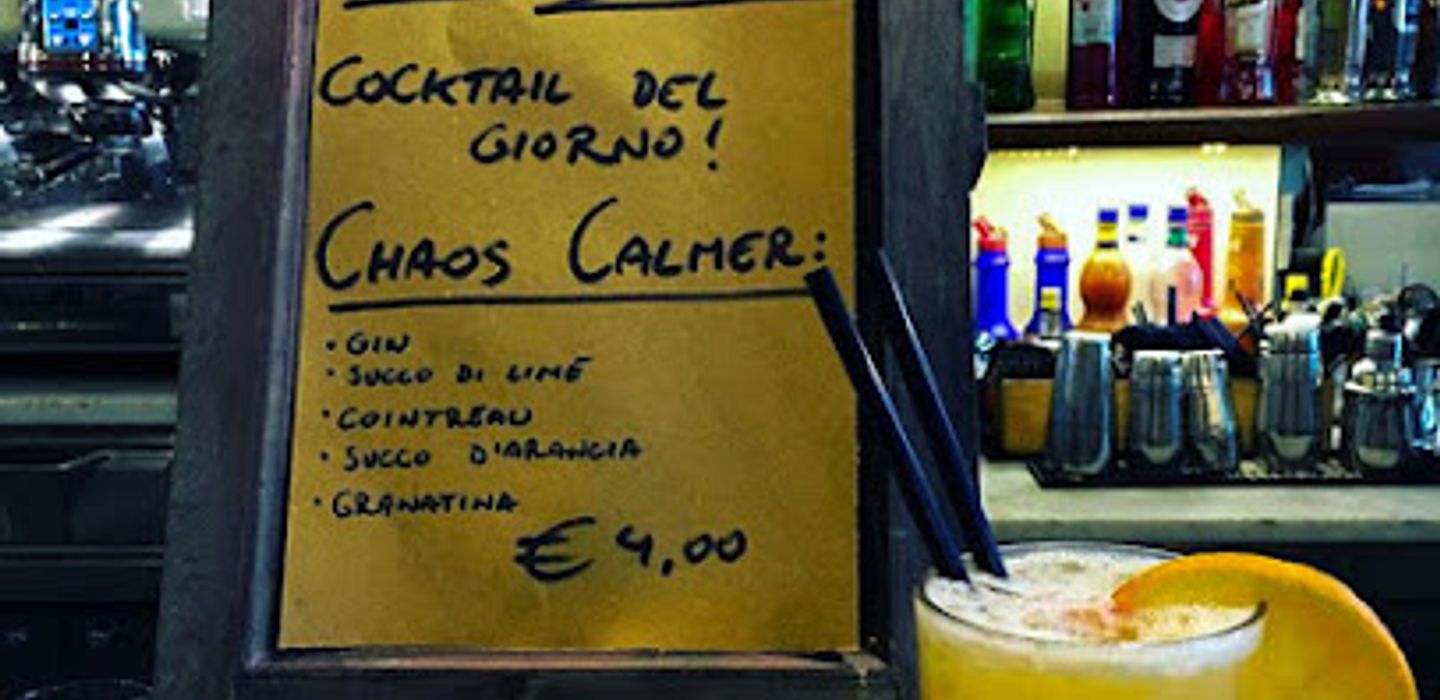 COCKTAIL DEL
GIORNO!
CHAOS CALMER:
• GIN
• SUCCO DI LIME
• COINTREAU
• SUCCO D'ARANCIA
• GRANATINA
€ 4,00